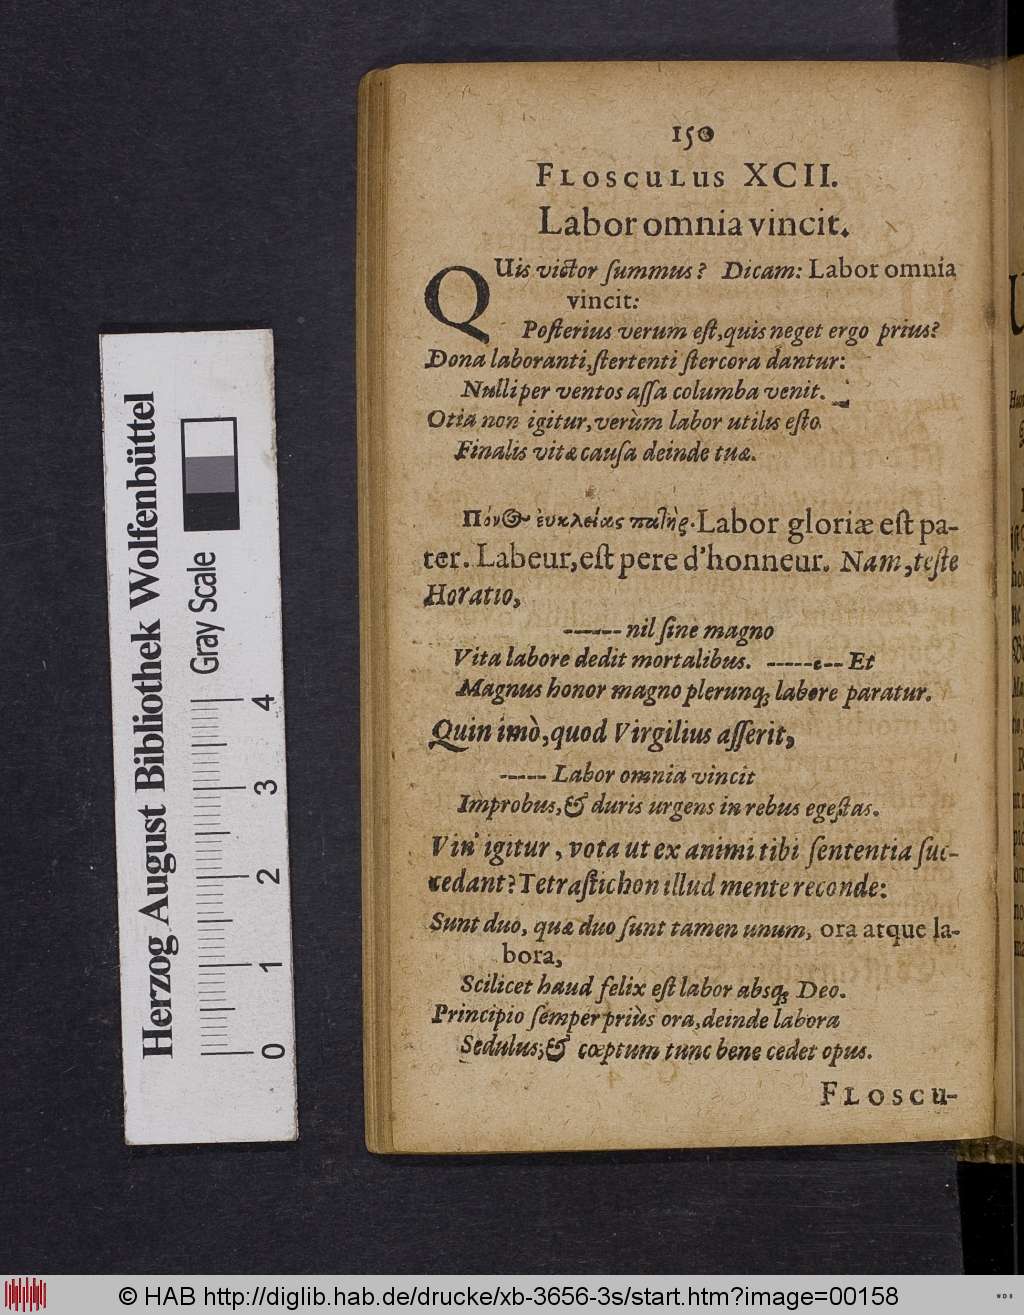 150
FLOSCULUS XCII.
Labor omnia vincit.
QUis victor ſummus? Dicam: Labor omnia
vincit:
Poſterius verum eſt, quis neget ergo prius?
Dona laboranti, ſtertenti ſtercora dantur:
Nulli per ventos aſſa columba venit.
Otia non igitur, verùm labor utilis eſto
Finalis vitæ cauſa deinde tuæ.
Πόνος ἐυκλείας πατὴρ. Labor gloriæ eſt pa-
ter. Labeur, eſt pere d'honneur. Nam, teſte
Horatio,
------ nil ſine magno
Vita labore dedit mortalibus. -------- Et
Magnus honor magno plerunqꝫ labore paratur.
Quin imò, quod Virgilius aſſerit,
----- Labor omnia vincit
Improbus, & duris urgens in rebus egeſtas.
Vin' igitur, vota ut ex animi tibi ſententia ſuc-
cedant? Tetraſtichon illud mente reconde:
Sunt duo, quæ duo ſunt tamen unum, ora atque la-
bora,
Scilicet haud felix eſt labor absqꝫ Deo.
Principio ſemper priùs ora, deinde labora
Sedulus; & cœptum tunc bene cedet opus.
FLOSCU-
Herzog August Bibliothek Wolfenbüttel
Gray Scale
0 1 2 3 4
© HAB http://diglib.hab.de/drucke/xb-3656-3s/start.htm?image=00158